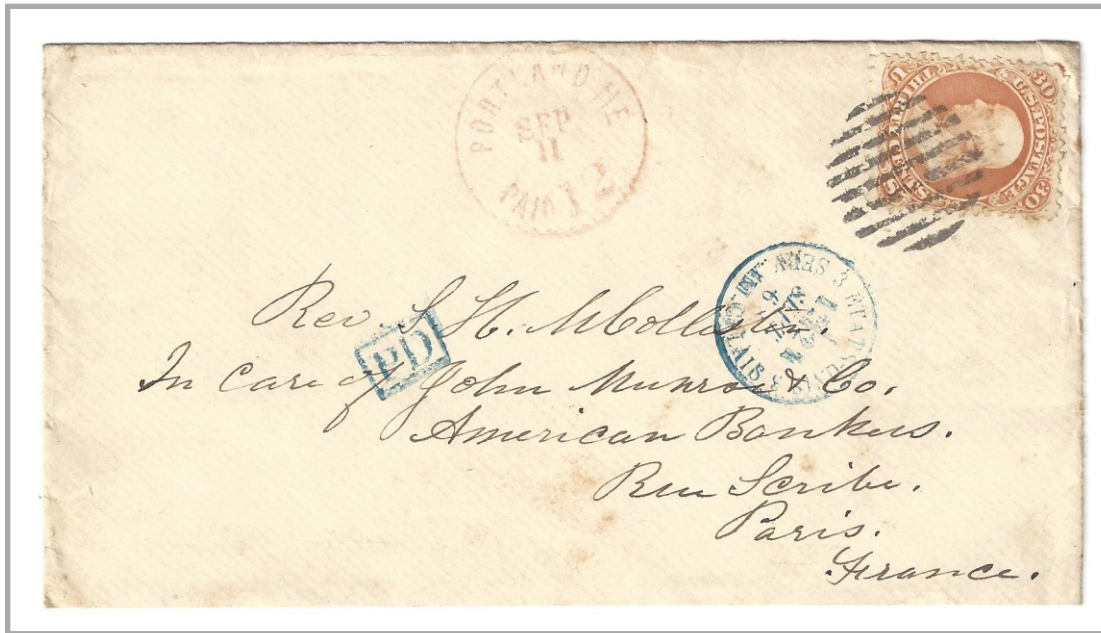 PORTLAND ME
SEP
11
PAID 12
U.S. POSTAGE
30 30
PD
ETATS UNIS SERV. AM. CALAIS
Rev. S. H. McCollister.
In care of John Munroe & Co.
American Bankers.
Rue Scribe.
Paris.
France.